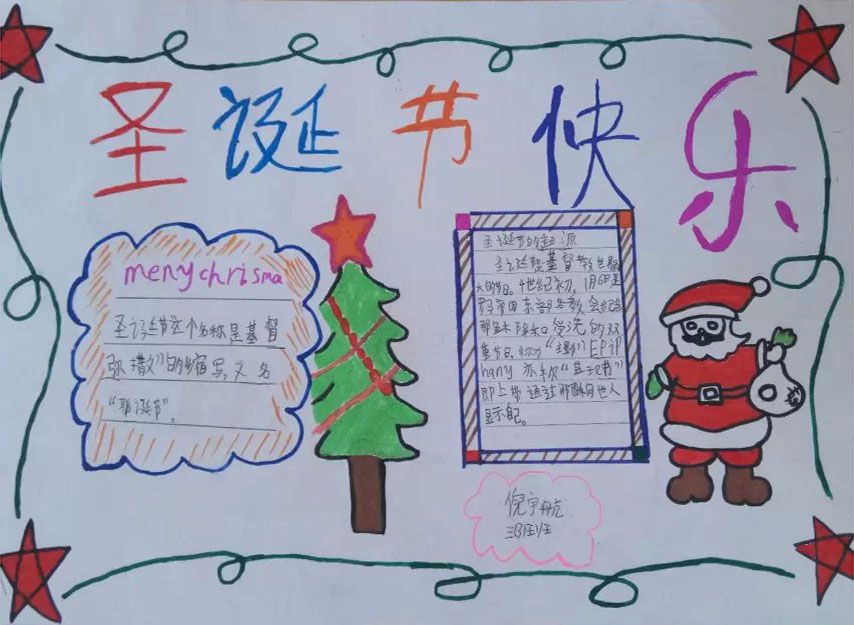 圣诞节快乐
menychrisma
圣诞节这个名称是基督
弥撒》的缩写,又名
“耶诞节”。
圣诞节的起源
圣诞是基督教世界最
大的节日。4世纪初,1月6日是
罗马帝国东部各教会纪念
耶稣降和受洗的双
重节日、称为“主显》EPip
hany 亦称“显现节”
即上帝通过耶稣向世人
显示自己。
倪宇航